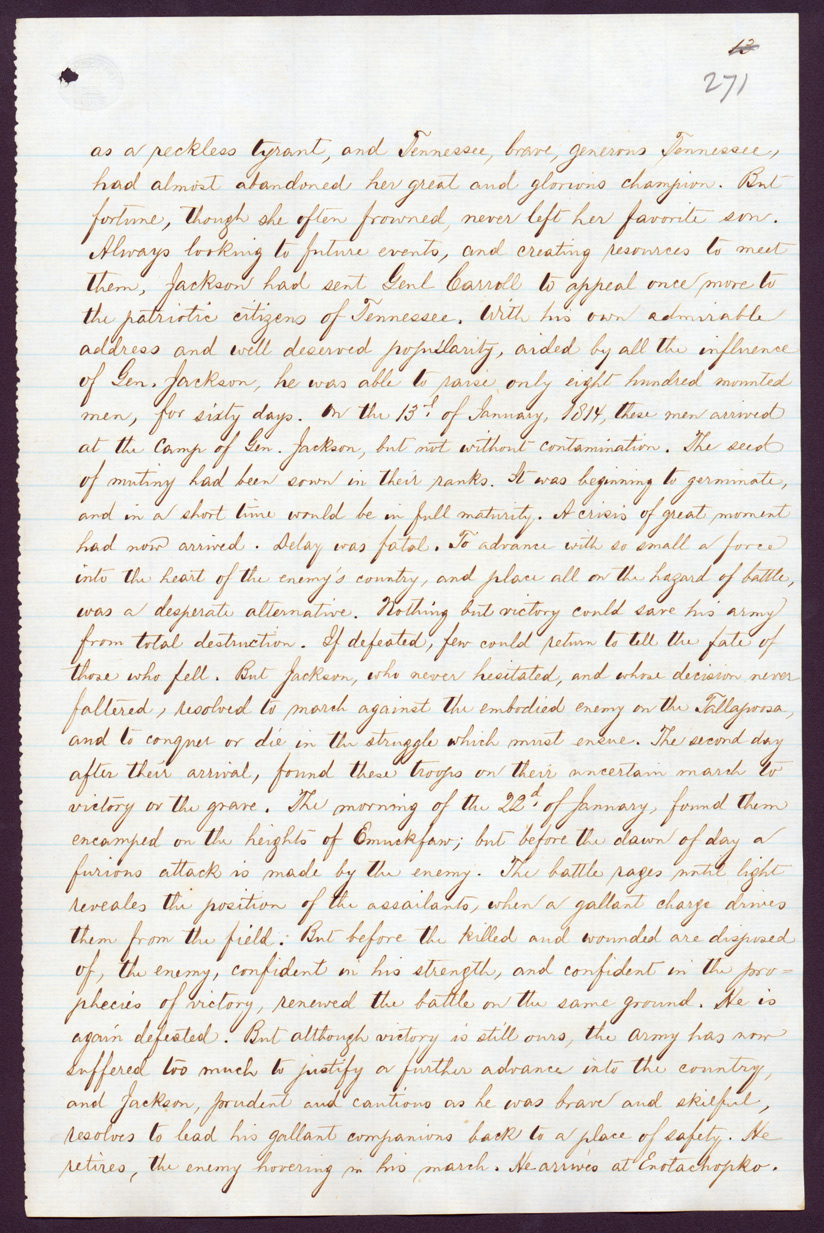 12
271
as a reckless tyrant, and Tennessee, brave, generous Tennessee,
had almost abandoned her great and glorious champion. But
fortune, though she often frowned, never left her favorite son.
Always looking to future events, and creating resources to meet
them, Jackson had sent Genl Carroll to appeal once more to
the patriotic citizens of Tennessee. With his own admirable
address and well deserved popularity, aided by all the influence
of Gen. Jackson, he was able to raise only eight hundred mounted
men, for sixty days. On the 13th of January, 1814, these men arrived
at the Camp of Gen. Jackson, but not without contamination. The seed
of mutiny had been sown in their ranks. It was beginning to germinate,
and in a short time would be in full maturity. A crisis of great moment
had now arrived. Delay was fatal. To advance with so small a force
into the heart of the enemy's country, and place all on the hazard of battle,
was a desperate alternative. Nothing but victory could save his army
from total destruction. If defeated, few could return to tell the fate of
those who fell. But Jackson, who never hesitated, and whose decision never
faltered, resolved to march against the embodied enemy on the Tallapoosa,
and to conquer or die in the struggle which must ensue. The second day
after their arrival, found these troops on their uncertain march to
victory or the grave. The morning of the 22d. of January, found them
encamped on the heights of Emuckfaw; but before the dawn of day a
furious attack is made by the enemy. The battle rages until light
reveales the position of the assailants, when a gallant charge drives
them from the field. But before the killed and wounded are disposed
of, the enemy, confident in his strength, and confident in the pro=
phecies of victory, renewed the battle on the same ground. He is
again defeated. But although victory is still ours, the army has now
suffered too much to justify a further advance into the country,
and Jackson, prudent and cautious as he was brave and skilful,
resolves to lead his gallant companions back to a place of safety. He
retires, the enemy hovering in his march. He arrives at Enotachopko.